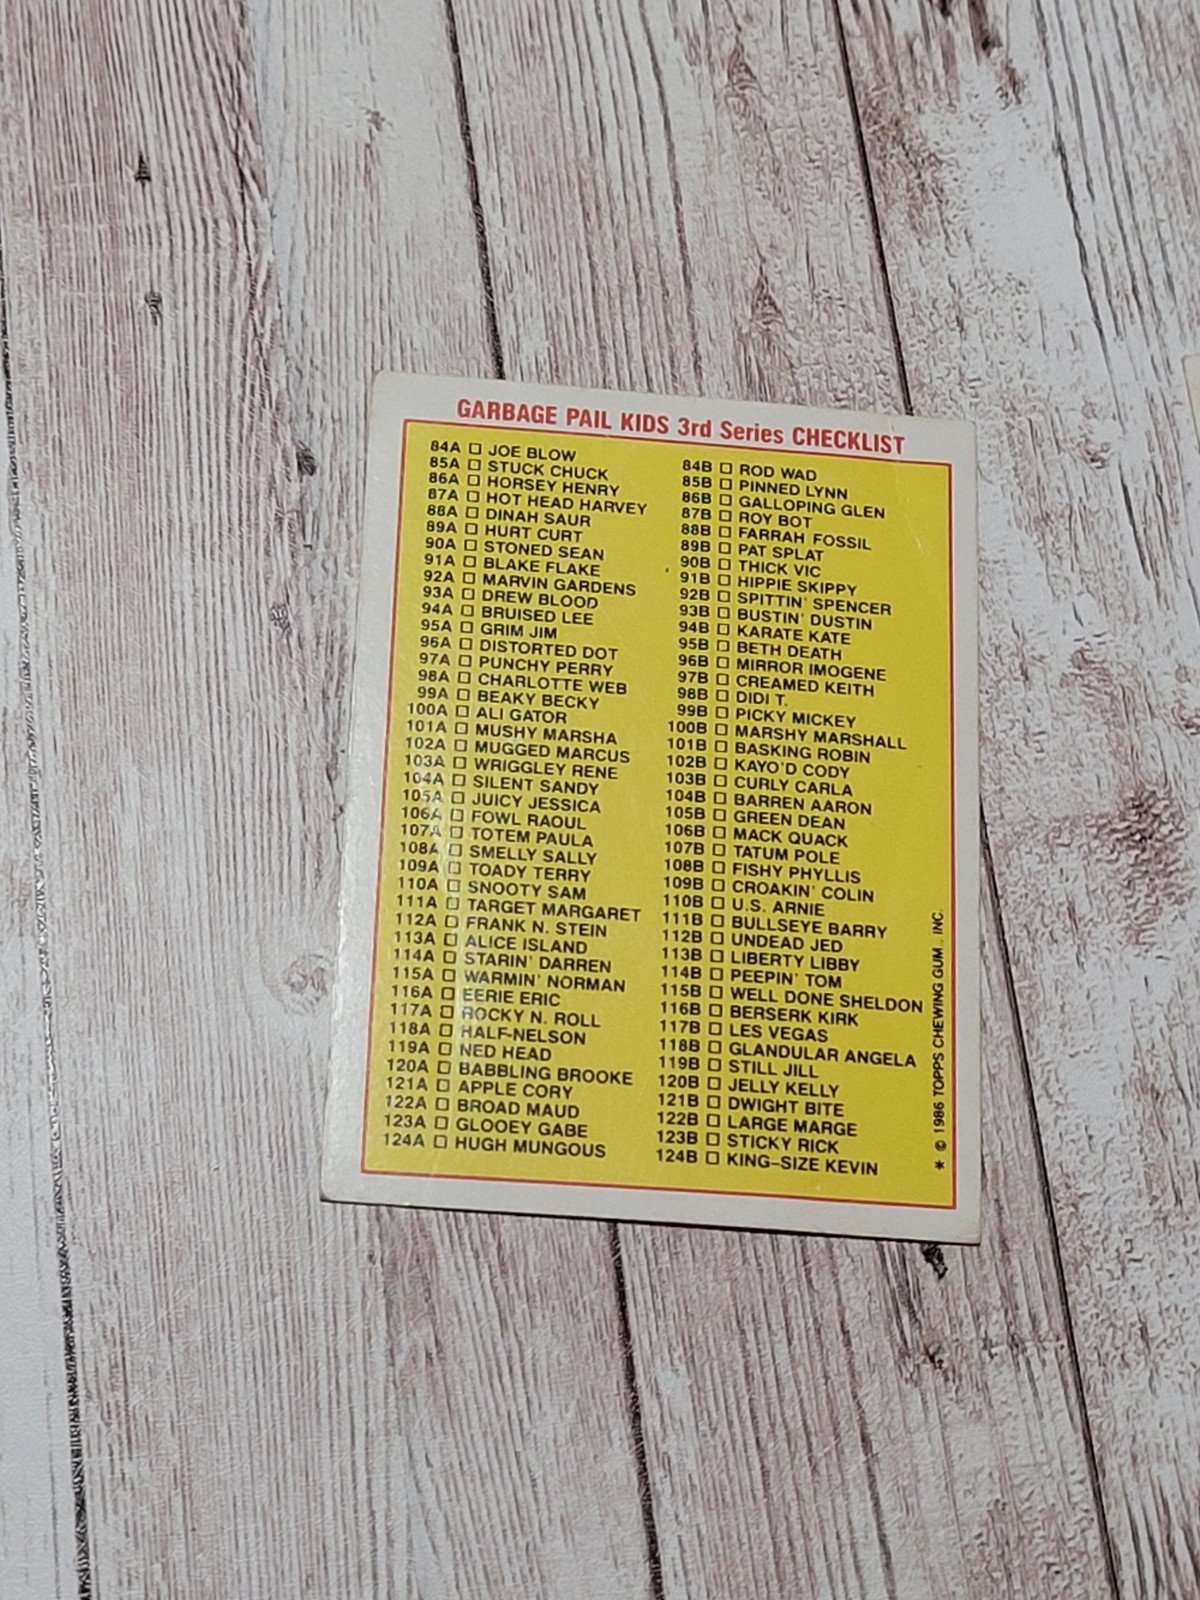 GARBAGE PAIL KIDS 3rd Series CHECKLIST
84A □ JOE BLOW
85A □ STUCK CHUCK
86A □ HORSEY HENRY
87A □ HOT HEAD HARVEY
88A □ DINAH SAUR
89A □ HURT CURT
90A □ STONED SEAN
91A □ BLAKE FLAKE
92A □ MARVIN GARDENS
93A □ DREW BLOOD
94A □ BRUISED LEE
95A □ GRIM JIM
96A □ DISTORTED DOT
97A □ PUNCHY PERRY
98A □ CHARLOTTE WEB
99A □ BEAKY BECKY
100A □ ALI GATOR
101A □ MUSHY MARSHA
102A □ MUGGED MARCUS
103A □ WRIGGLEY RENE
104A □ SILENT SANDY
105A □ JUICY JESSICA
106A □ FOWL RAOUL
107A □ TOTEM PAULA
108A □ SMELLY SALLY
109A □ TOADY TERRY
110A □ SNOOTY SAM
111A □ TARGET MARGARET
112A □ FRANK N. STEIN
113A □ ALICE ISLAND
114A □ STARIN' DARREN
115A □ WARMIN' NORMAN
116A □ EERIE ERIC
117A □ ROCKY N. ROLL
118A □ HALF-NELSON
119A □ NED HEAD
120A □ BABBLING BROOKE
121A □ APPLE CORY
122A □ BROAD MAUD
123A □ GLOOEY GABE
124A □ HUGH MUNGOUS
84B □ ROD WAD
85B □ PINNED LYNN
86B □ GALLOPING GLEN
87B □ ROY BOT
88B □ FARRAH FOSSIL
89B □ PAT SPLAT
90B □ THICK VIC
91B □ HIPPIE SKIPPY
92B □ SPITTIN' SPENCER
93B □ BUSTIN' DUSTIN
94B □ KARATE KATE
95B □ BETH DEATH
96B □ MIRROR IMOGENE
97B □ CREAMED KEITH
98B □ DIDI T.
99B □ PICKY MICKEY
100B □ MARSHY MARSHALL
101B □ BASKING ROBIN
102B □ KAYO'D CODY
103B □ CURLY CARLA
104B □ BARREN AARON
105B □ GREEN DEAN
106B □ MACK QUACK
107B □ TATUM POLE
108B □ FISHY PHYLLIS
109B □ CROAKIN' COLIN
110B □ U.S. ARNIE
111B □ BULLSEYE BARRY
112B □ UNDEAD JED
113B □ LIBERTY LIBBY
114B □ PEEPIN' TOM
115B □ WELL DONE SHELDON
116B □ BERSERK KIRK
117B □ LES VEGAS
118B □ GLANDULAR ANGELA
119B □ STILL JILL
120B □ JELLY KELLY
121B □ DWIGHT BITE
122B □ LARGE MARGE
123B □ STICKY RICK
124B □ KING-SIZE KEVIN
* © 1986 TOPPS CHEWING GUM, INC.